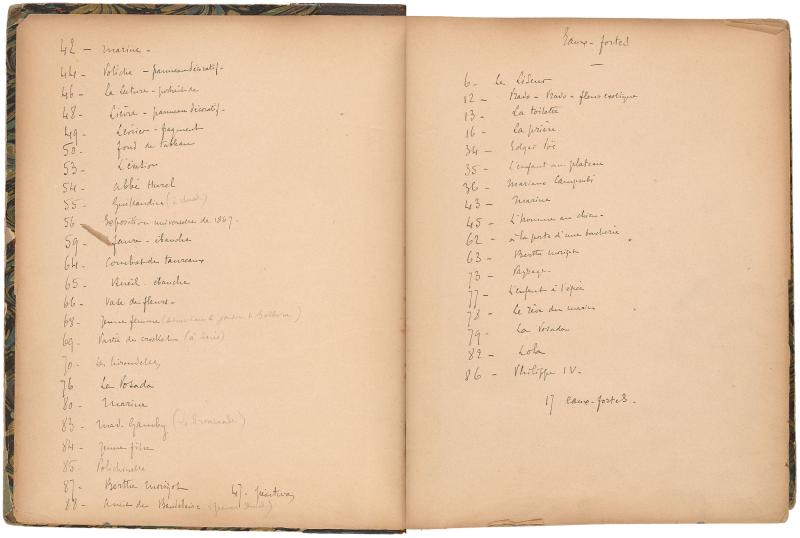 42 - Marine -
44 - Potiche - panneau décoratif -
46 - La lecture -
48 - Lièvre - panneau décoratif -
49 - Lévrier - fragment
50 - fond de tableau
53 - L'évasion
54 - abbé Hurel
55 - Guillaudin
56 - Exposition universelle de 1867 -
59 - faure - ébauche
64 - Combat de taureaux
65 - ébauche
66 - Vase de fleurs -
68 - Jeune femme
69 - Partie de crocket (à Paris)
70 - Les hirondelles
76 - La Posada
80 - Marine
83 - Mad. Gamby (La Promenade)
84 - Jeune fille
85 - Polichinelle
87 - Berthe Morizot
47 - peintures
88 - amie de Baudelaire
Eaux-fortes
6 - Le Liseur
12 - fleur exotique
13 - La toilette
16 - La prière
34 - Edgar Poë
35 - L'enfant au plateau
36 - Mariano Camprubi
43 - Marine
45 - L'homme au chien -
62 - à la porte d'une boucherie
63 - Berthe Morizot
73 - Paysage -
77 - L'enfant à l'épée
78 - Le rêve du marin
79 - La Posada
82 - Lola
86 - Philippe IV -
17 eaux-fortes.